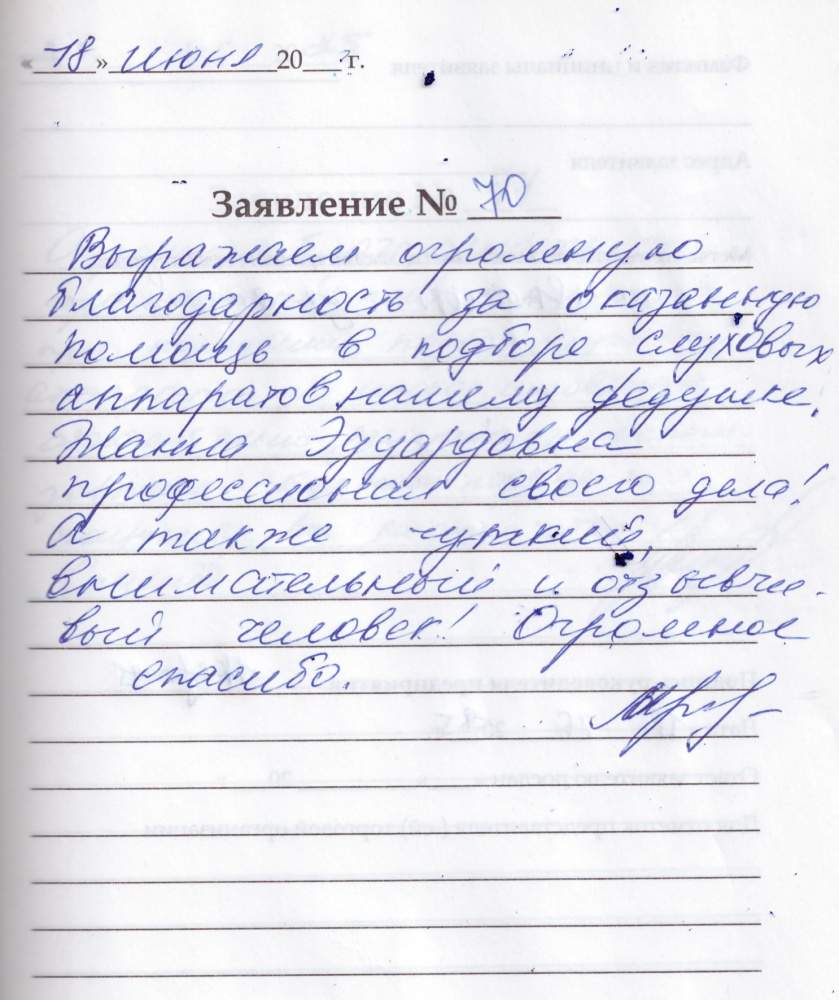 « 18 » июня 20___ г.
Заявление № 70
Выражаем огромную
благодарность за оказанную
помощь в подборе слуховых
аппаратов нашему дедушке.
Жанна Эдуардовна
профессионал своего дела!
А также чуткий,
внимательный и отзывчи-
вый человек! Огромное
спасибо.